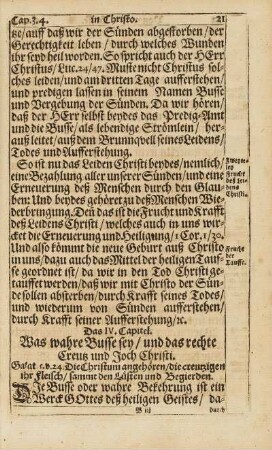 Cap. 3. 4. in Christo. 21
tze/ auff daß wir der Sünden abgestorben/ der
Gerechtigkeit leben/ durch welches Wunden
ihr seyd heil worden. So spricht auch der HErr
Christus/ Luc. 24/47. Muste nicht Christus sol-
ches leiden/ und am dritten Tage aufferstehen/
und predigen lassen in seinem Namen Busse
und Vergebung der Sünden. Da wir hören/
daß der HErr selbst beydes das Predig-Amt
und die Busse/ als lebendige Strömlein/ her-
auß leitet/ auß dem Brunnqvell seines Leidens/
Todes und Aufferstehung.
So ist nu das Leiden Christi beydes/ nemlich/
eine Bezahlung aller unserer Sünden/ und eine
Erneuerung deß Menschen durch den Glau-
ben: Und beydes gehöret zu deß Menschen Wie-
derbringung. Deñ das ist die Frucht und Krafft
deß Leidens Christi/ welches auch in uns wir-
cket die Erneuerung und Heiligung/ 1 Cor. 1/30.
Und also kömmt die neue Geburt auß Christo
in uns/ dazu auch das Mittel der heiligen Tauf-
fe geordnet ist/ da wir in den Tod Christi ge-
taufft werden/ daß wir mit Christo der Sün-
de sollen absterben/ durch Krafft seines Todes/
und wiederum von Sünden aufferstehen/
durch Krafft seiner Aufferstehung/ ꝛc.
Zweyer-
ley
Frucht
deß Lei-
dens
Christi.
Frucht
der
Tauffe.
Das IV. Capitel.
Was wahre Busse sey/ und das rechte
Creutz und Joch Christi.
Galat. c. 5. v. 24. Die Christum angehören/ die creutzigen
ihr Fleisch/ sammt den Lüsten und Begierden.
DIe Busse oder wahre Bekehrung ist ein
Werck GOttes deß heiligen Geistes/ da-
B iij durch